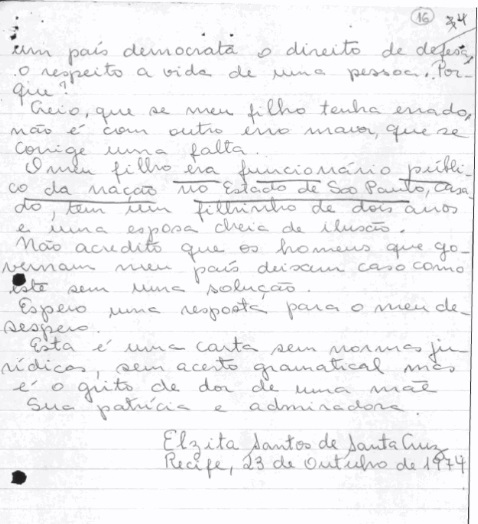 16 34
um país democrata o direito de defesa,
o respeito a vida de uma pessoa. Por-
que?
Creio, que se meu filho tenha errado,
não é com outro erro maior, que se
corrige uma falta.
O meu filho era funcionário públi-
co da nação no Estado de São Paulo, casa-
do, tem um filhinho de dois anos
e uma esposa cheia de ilusão.
Não acredito que os homens que go-
vernam meu país deixem caso como
êste sem uma solução.
Espero uma resposta para o meu de-
sespero.
Esta é uma carta sem normas ju-
rídicas, sem acerto gramatical mas
é o grito de dor de uma mãe
Sua patrícia e admiradora.
Elzita Santos de Santa Cruz
Recife, 23 de Outubro de 1974